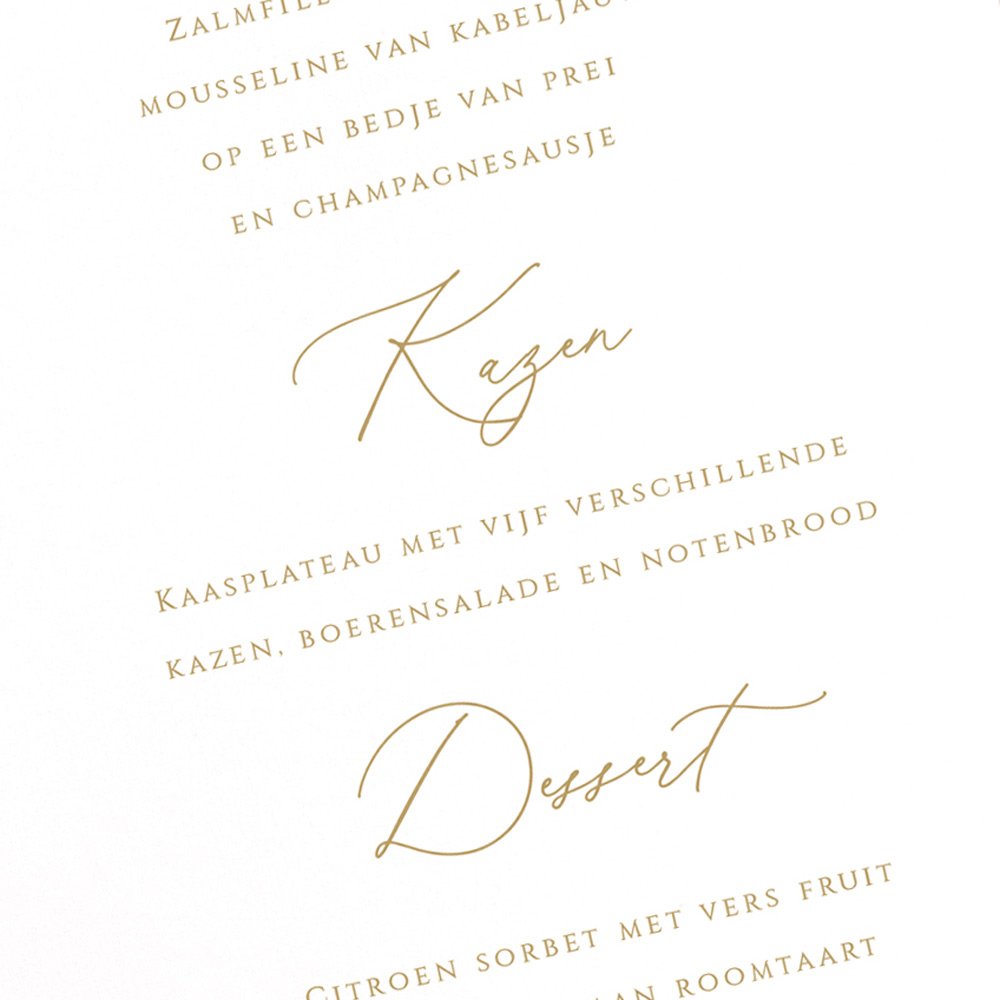 Zalmfile
mousseline van kabeljau
op een bedje van prei
en champagnesausje
Kazen
Kaasplateau met vijf verschillende
kazen, boerensalade en notenbrood
Dessert
Citroen sorbet met vers fruit
an roomtaart